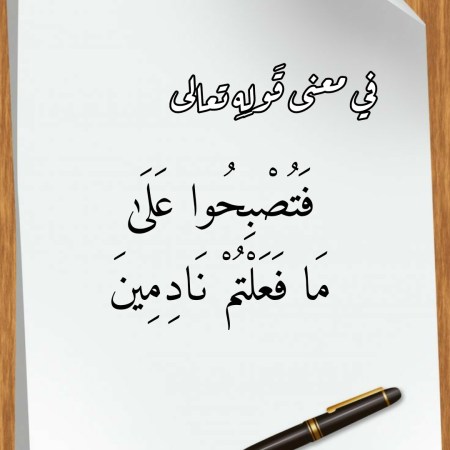 في معنى قَولِهِ تعالى
فَتُصْبِحُوا عَلَىٰ
مَا فَعَلْتُمْ نَادِمِينَ